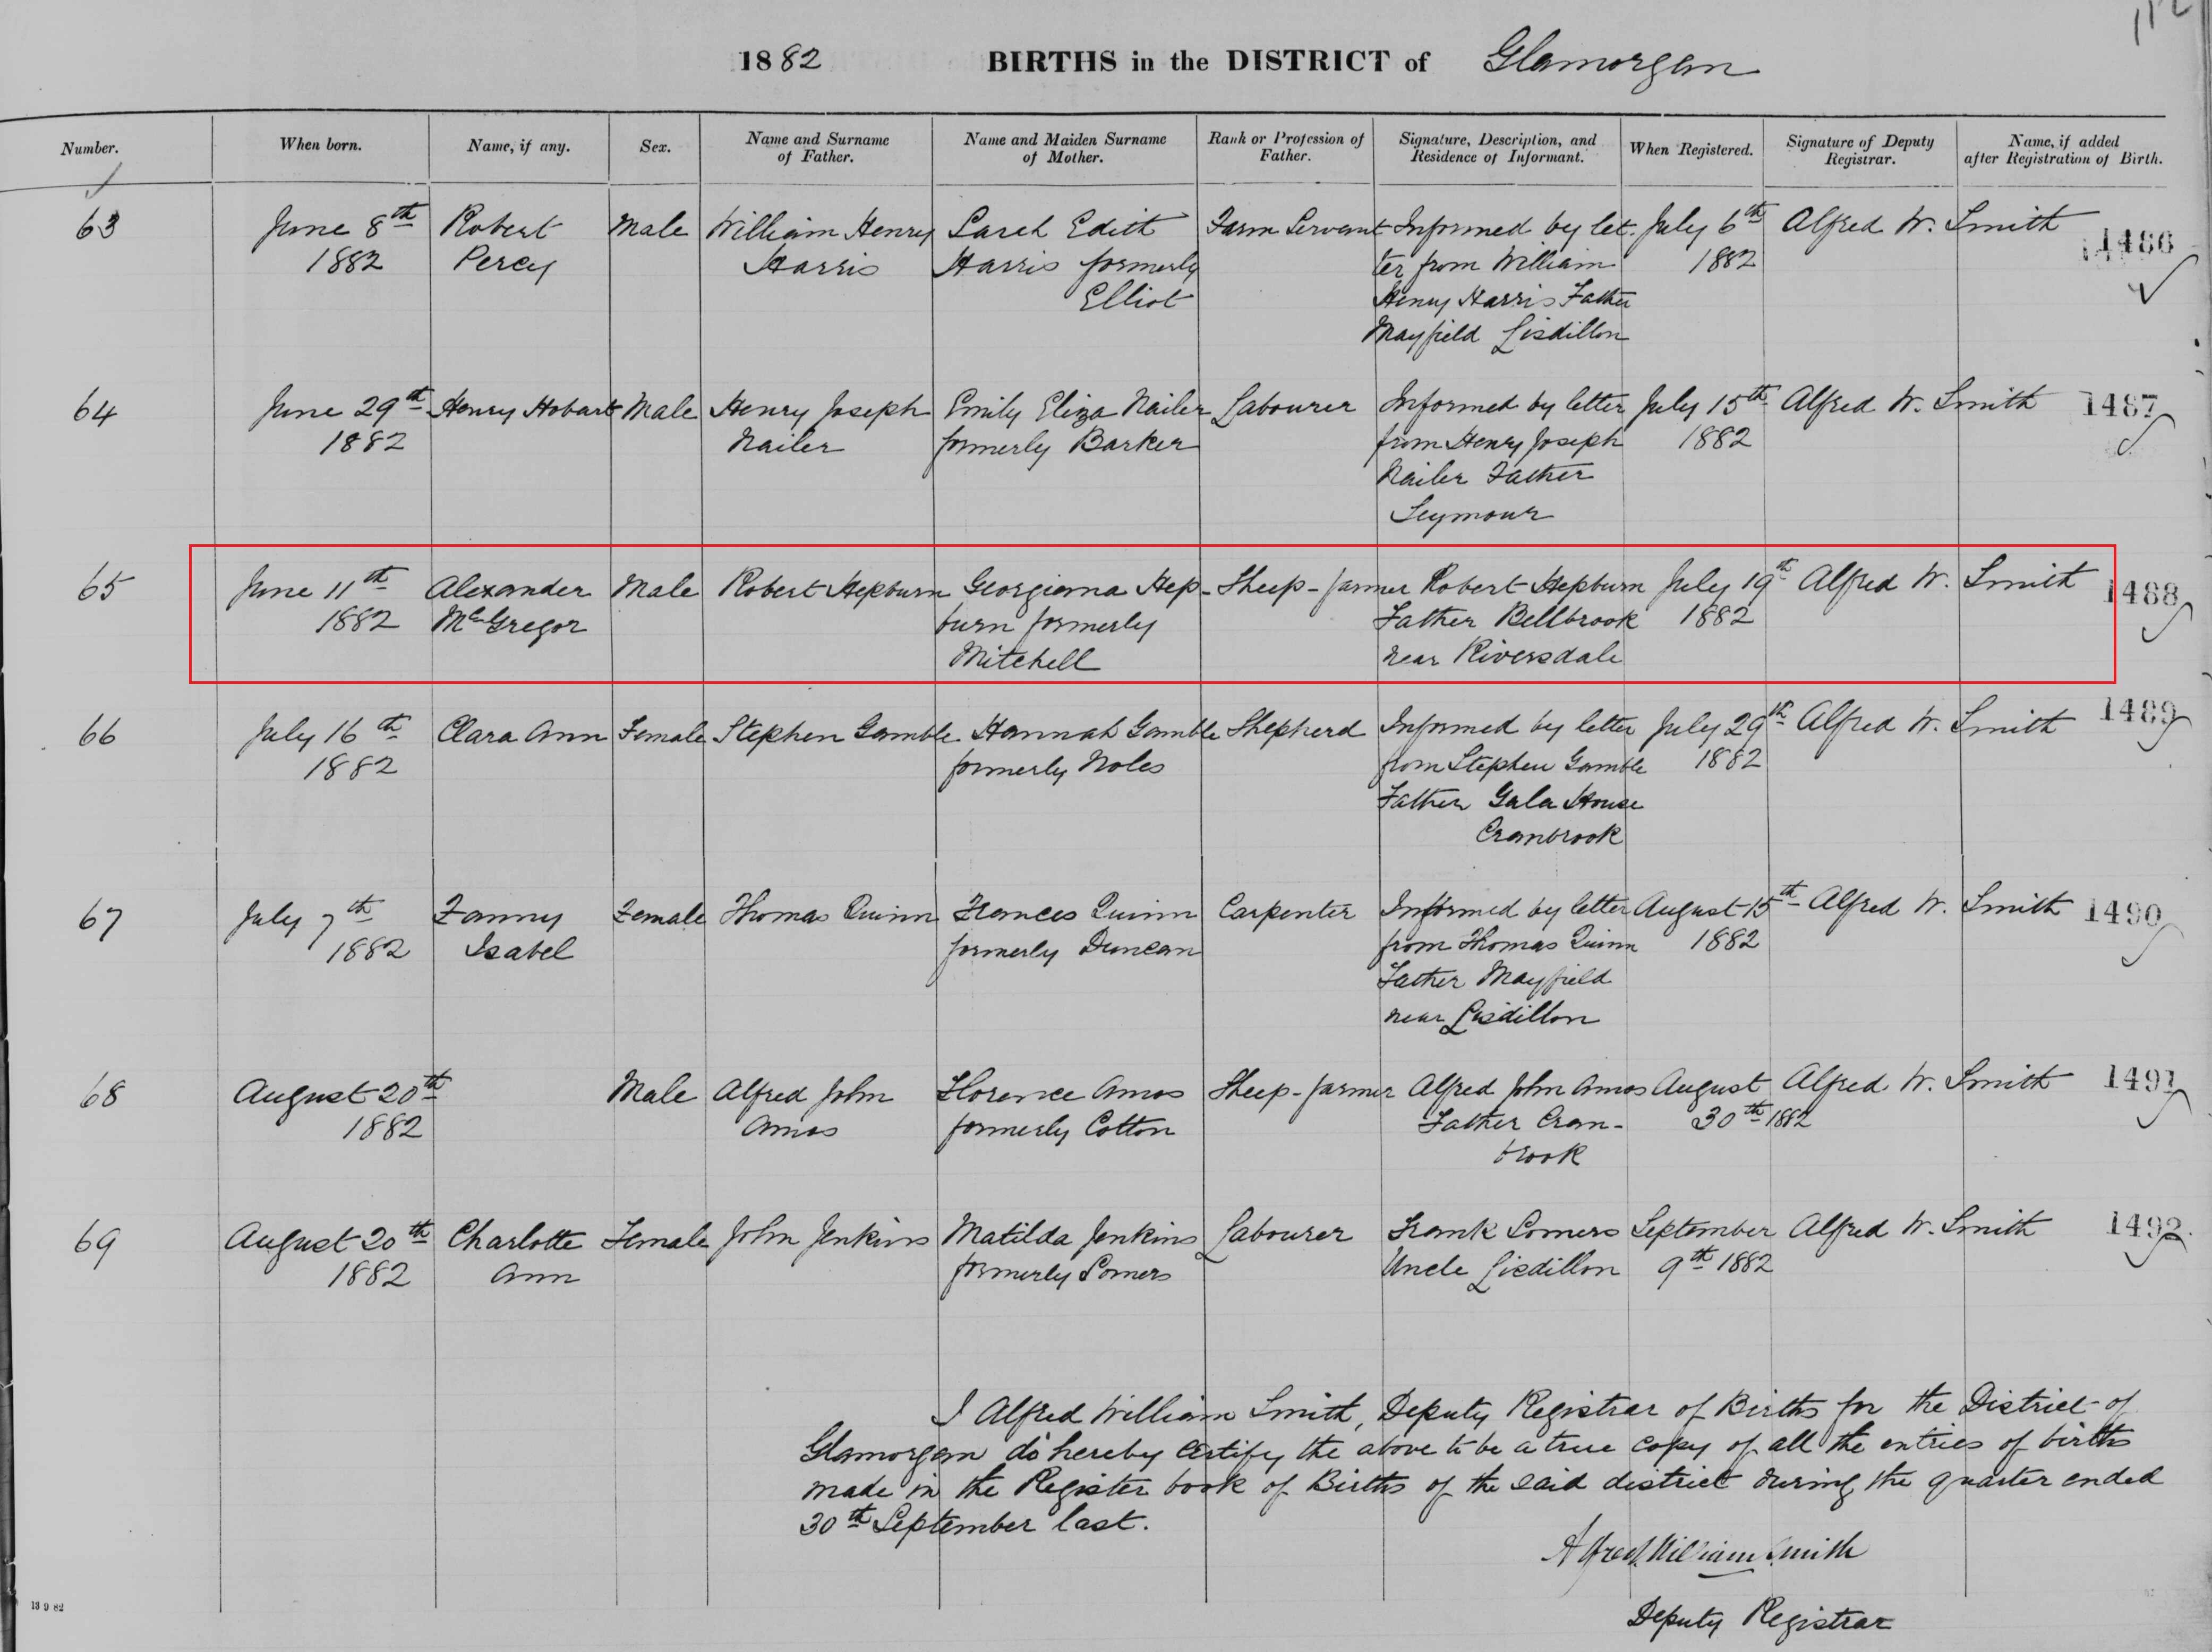 1882 BIRTHS in the DISTRICT of Glamorgan
Number. When born. Name, if any. Sex. Name and Surname of Father. Name and Maiden Surname of Mother. Rank or Profession of Father. Signature, Description, and Residence of Informant. When Registered. Signature of Deputy Registrar. Name, if added after Registration of Birth.
63 June 8th Robert Male William Henry Sarah Edith Farm Servant Informed by let- July 6th Alfred W. Smith 1486
1882 Percy Harris Harris formerly ter from William 1882
Elliot Henry Harris Father
Mayfield Lisdillon
64 June 29th Henry Hobart Male Henry Joseph Emily Eliza Nailer Labourer Informed by letter July 15th Alfred W. Smith 1487
1882 Nailer formerly Barker from Henry Joseph 1882
Nailer Father
Seymour
65 June 11th Alexander Male Robert Hepburn Georgiana Hep- Sheep-farmer Robert Hepburn July 19th Alfred W. Smith 1488
1882 McGregor burn formerly Father Bellbrook 1882
Mitchell near Riversdale
66 July 16th Clara Ann Female Stephen Gamble Hannah Gamble Shepherd Informed by letter July 29th Alfred W. Smith 1489
1882 formerly Noles from Stephen Gamble 1882
Father Gala House
Cranbrook
67 July 7th Fanny Female Thomas Quinn Frances Quinn Carpenter Informed by letter August 15th Alfred W. Smith 1490
1882 Isabel formerly Duncan from Thomas Quinn 1882
Father Mayfield
near Lisdillon
68 August 20th Male Alfred John Florence Amos Sheep-farmer Alfred John Amos August Alfred W. Smith 1491
1882 Amos formerly Cotton Father Cran- 30th 1882
brook
69 August 20th Charlotte Female John Jenkins Matilda Jenkins Labourer Frank Somers September Alfred W. Smith 1492
1882 Ann formerly Somers Uncle Lisdillon 9th 1882
I Alfred William Smith, Deputy Registrar of Births for the District of
Glamorgan do hereby certify the above to be a true copy of all the entries of births
made in the Register book of Births of the said district during the quarter ended
30th September last.
Alfred William Smith
Deputy Registrar
13 9 82